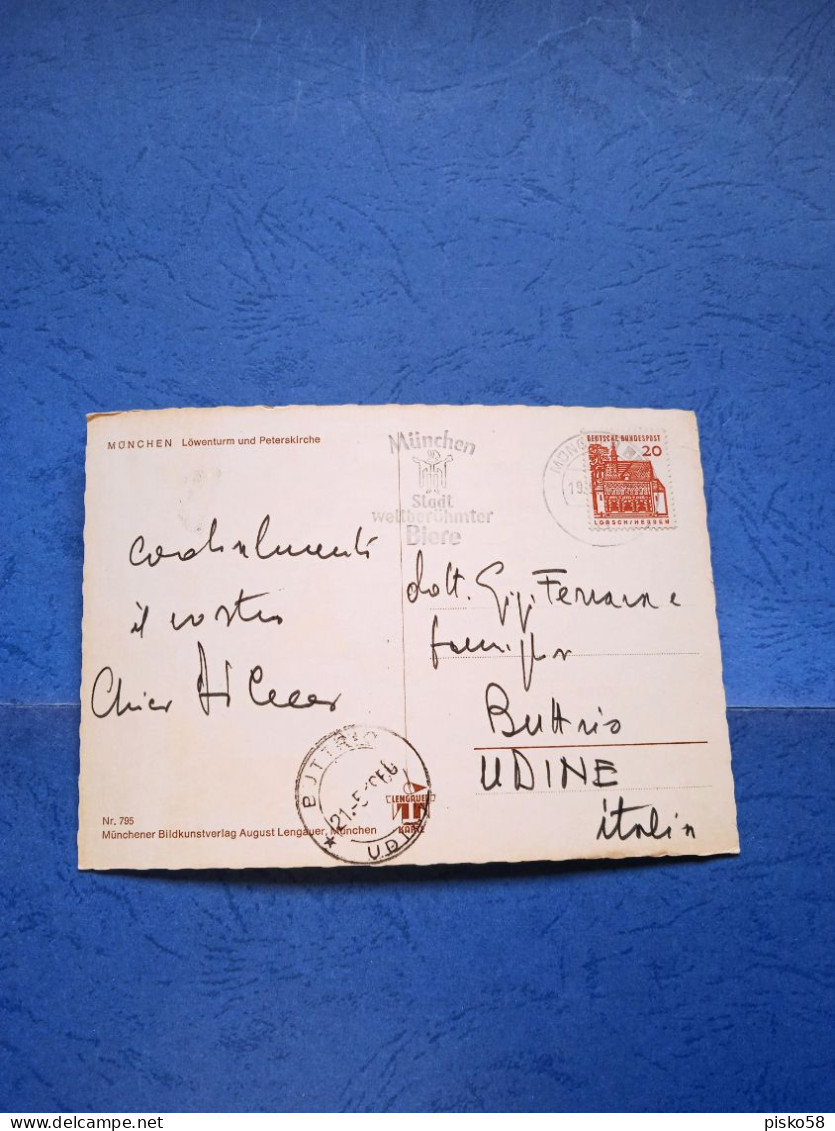 MÜNCHEN Löwenturm und Peterskirche
München
Stadt
weltberühmter
Biere
DEUTSCHE BUNDESPOST
20
LORSCH/HESSEN
cordialmente
il vostro
dott. Gigi
famiglia
Buttrio
UDINE
italia
BUTTRIO
21.-5
UDINE
LENGAUER
KARTE
Nr. 795
Münchener Bildkunstverlag August Lengauer, München
pisko58